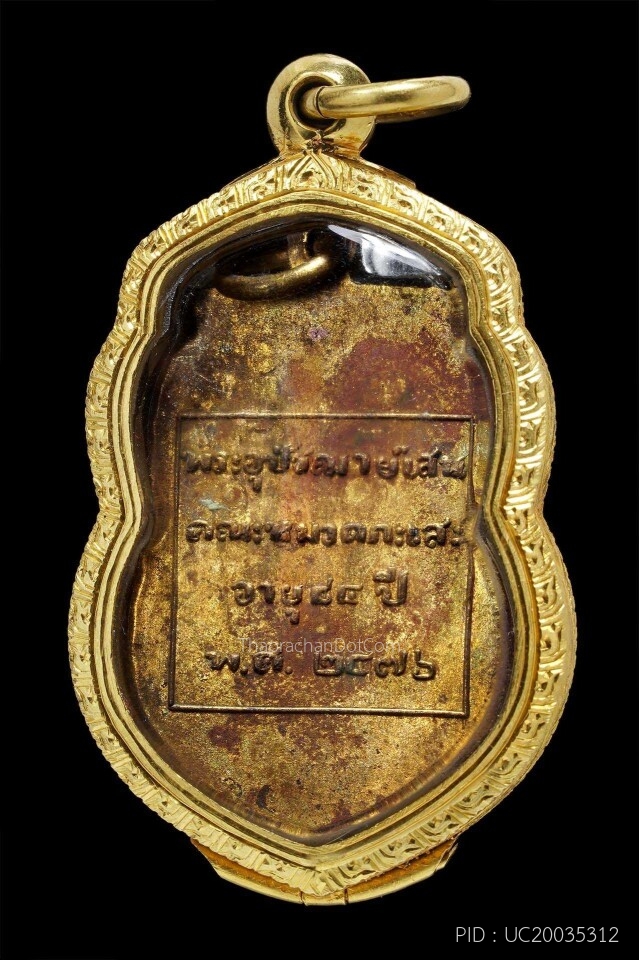 พระอุปัชฌาย์เสน
คณะหมวดกะแสะ
อายุ๘๔ ปี
ThaprachanDotCom
พ.ศ. ๒๔๗๖
PID : UC20035312